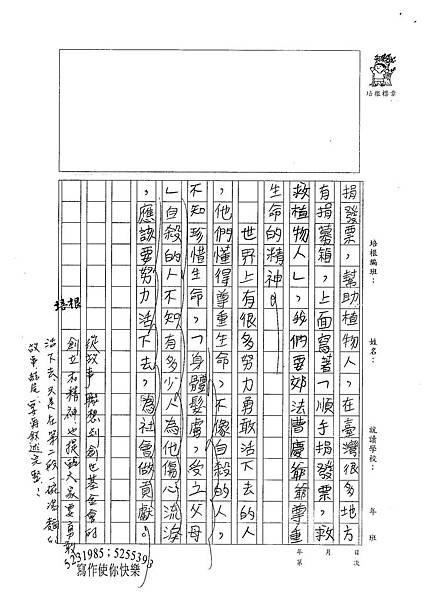 培根標章
培根編班：
姓名：
就讀學校：
年 班
月 日
第 次
捐發票，幫助植物人，在臺灣很多地方
有捐募箱，上面寫著「順手捐發票，救
救植物人」，我們要效法曹慶爺爺尊重
生命的精神。
世界上有很多努力勇敢活下去的人
，他們懂得尊重生命，不像自殺的人，
不知珍惜生命，「身體髮膚，受之父母
」自殺的人不知有多少人為他傷心流淚
，應該要努力活下去，為社會做貢獻。
培根
從故事聯想到創世基金會的
創立和精神也提醒大家要勇敢
活下去只是在第二段
故事
要
敘述完整！
5231985；5255393
寫作使你快樂